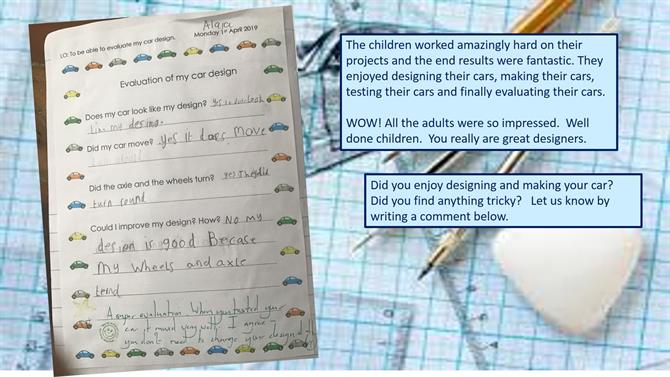 Alaia
Monday 1st April 2019
LO: To be able to evaluate my car design.
Evaluation of my car design
Does my car look like my design? Yes it dos look
like my desing.
Did my car move? yes It dors move
Did the axle and the wheels turn? yes they did
turn round
Could I improve my design? How? No my
design is good Becase
my wheels and axle
terнd
A super evaluation. When you tested your
car it moved very well. I agree
you don't need to change your design at
The children worked amazingly hard on their
projects and the end results were fantastic. They
enjoyed designing their cars, making their cars,
testing their cars and finally evaluating their cars.
WOW! All the adults were so impressed. Well
done children. You really are great designers.
Did you enjoy designing and making your car?
Did you find anything tricky? Let us know by
writing a comment below.